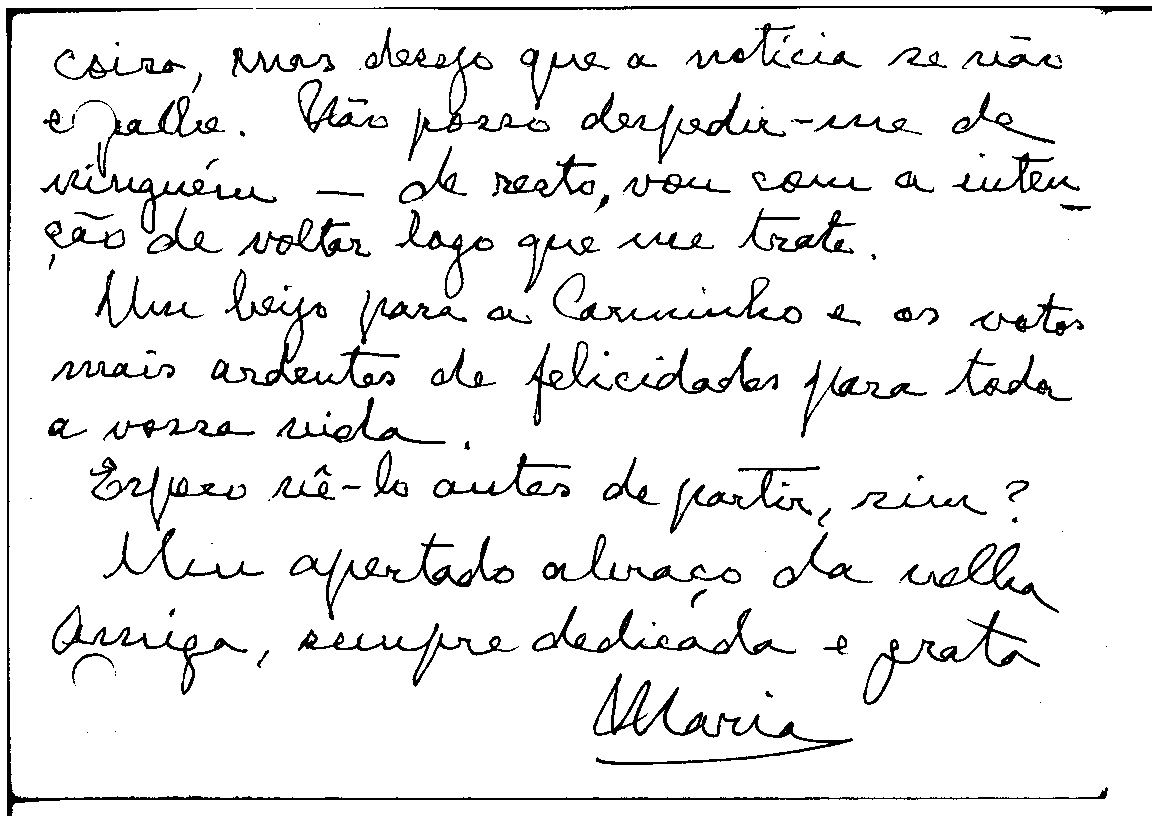 coisa, mas desejo que a notícia se não
espalhe. Não posso despedir-me de
ninguém — de resto, vou com a inten-
ção de voltar logo que me trate.
Um beijo para a Carminho e os votos
mais ardentes de felicidades para toda
a vossa vida.
Espero vê-lo antes de partir, sim?
Um apertado abraço da velha
Amiga, sempre dedicada e grata
Maria